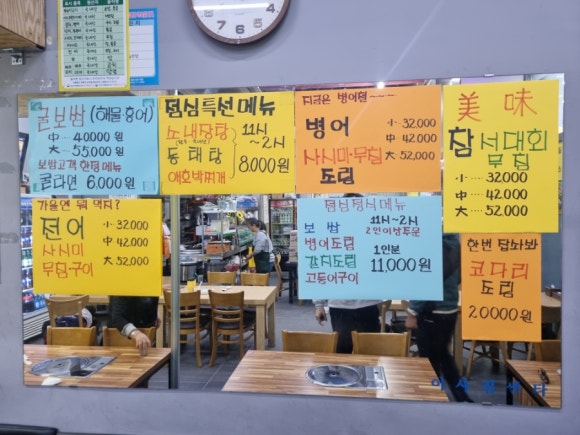 굴보쌈 (해물·홍어)
中 ‥ 40000원
大 ‥ 55,000원
보쌈고객 한정메뉴
굴라면 6,000원
점심특선메뉴
소내장탕
동태탕
애호박찌개
11시
~2시
8,000원
지금은 병어철~~
병어
사시미·무침
도림
小·32,000
中·42,000
大·52,000
美味
참 서대회
무침
小‥‥32,000
中‥‥42,000
大‥‥52,000
가을엔 뭐 먹지?
전어
사시미
무침·구이
小·32,000
中 42,000
大 52,000
점심정식메뉴
보쌈
병어조림
갈치조림
고등어구이
11시~2시
2인이상주문
1인분
11,000원
한번 잡솨봐
코다리
조림
20000원